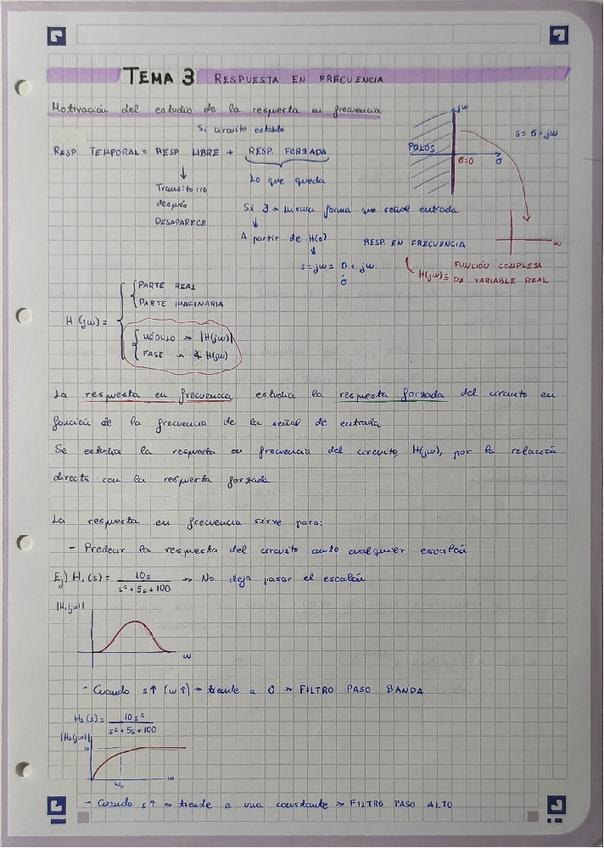 TEMA 3 RESPUESTA EN FRECUENCIA
Motivación del estudio de la respuesta en frecuencia
Si circuito estable
RESP. TEMPORAL = RESP LIBRE + RESP. FORZADA
↓
Transitorio
después
DESAPARECE
Lo que queda
jω
s = σ + jω
POLOS
σ=0
σ
ω
misma forma que señal entrada
↓
A partir de H(s)
↓
s = jω = 0 + jω
σ
RESP. EN FRECUENCIA
H(jω) = FUNCIÓN COMPLEJA
DE VARIABLE REAL
H(jω) =
PARTE REAL
PARTE IMAGINARIA
MÓDULO → |H(jω)|
FASE → ∡ H(jω)
La respuesta en frecuencia estudia la respuesta forzada del circuito en
función de la frecuencia de la señal de entrada
Se estudia la respuesta en frecuencia del circuito, H(jω), por la relación
directa con la respuesta forzada
La respuesta en frecuencia sirve para:
- Predecir la respuesta del circuito ante cualquier escalón
Ej) H₁(s) = 10s / s² + 5s + 100 → No deja pasar el escalón
|H₁(jω)|
ω
- Cuando s↑ (ω↑) → tiende a 0 → FILTRO PASO BANDA
H₂(s) = 10s² / s² + 5s + 100
|H₂(jω)|
10
ω₀
ω
- Cuando s↑ → tiende a una constante → FILTRO PASO ALTO